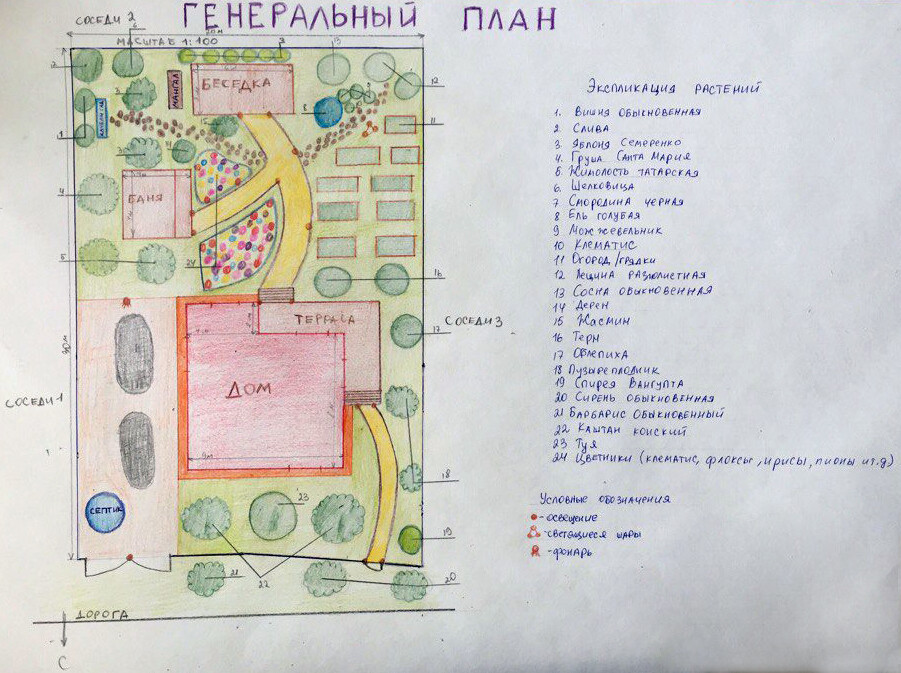 ГЕНЕРАЛЬНЫЙ ПЛАН
СОСЕДИ 2
20м
МАСШТАБ 1:100
БЕСЕДКА
МАНГАЛ
БАНЯ
ТЕРРАСА
ДОМ
СЕПТИК
СОСЕДИ 1
СОСЕДИ 3
30м
9м
ДОРОГА
С
6
3
13
12
2
3
8
11
1
15
4
24
5
16
17
18
23
19
22
21
20
Экспликация растений
1. Вишня обыкновенная
2. Слива
3 Яблоня Семеренко
4. Груша Санта Мария
5. Жимолость татарская
6. Шелковица
7 Смородина черная
8 Ель голубая
9 Можжевельник
10 Клематис
11 Огород/грядки
12 Лещина разнолистная
13 Сосна обыкновенная
14 Дерен
15 Жасмин
16 Терн
17 Облепиха
18 Пузыреплодник
19 Спирея Вангутта
20 Сирень обыкновенная
21 Барбарис обыкновенный
22 Каштан конский
23 Туя
24 Цветники (клематис, флоксы, ирисы, пионы и т.д)
Условные обозначения
- освещение
- светящиеся шары
- фонарь